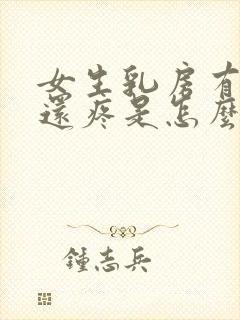 女生乳房有
還疼是怎麼
鍾志兵